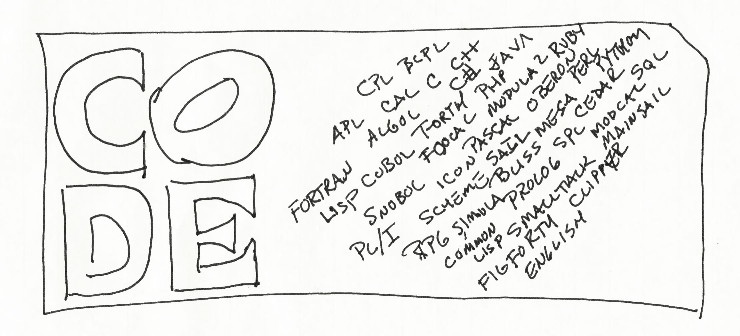 CO
DE
CPL BCPL
APL CAL C C++
FORTRAN ALGOL C# JAVA
LISP COBOL FORTH PHP RUBY
SNOBOL FOOCAL MODULA 2 PERL
PL/I ICON PASCAL OBERON PYTHON
SCHEME SAIL MESA CEDAR SQL
RPG SIMULA BLISS SPL MODCAL
COMMON PROLOG MAINSAIL
LISP SMALLTALK
FIGFORTH CLIPPER
ENGLISH